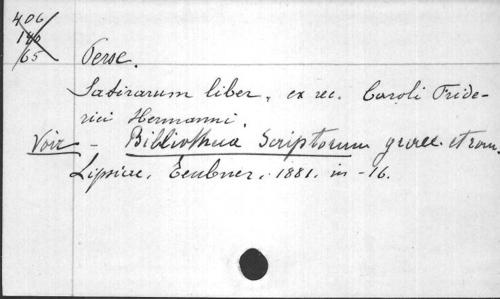 406
140
65
Perse.
Satirarum liber, ex rec. Caroli Fride-
rici Hermanni.
Voir - Bibliotheca Scriptorum graec. et rom.
Lipsiae, Teubner, 1881. in-16.